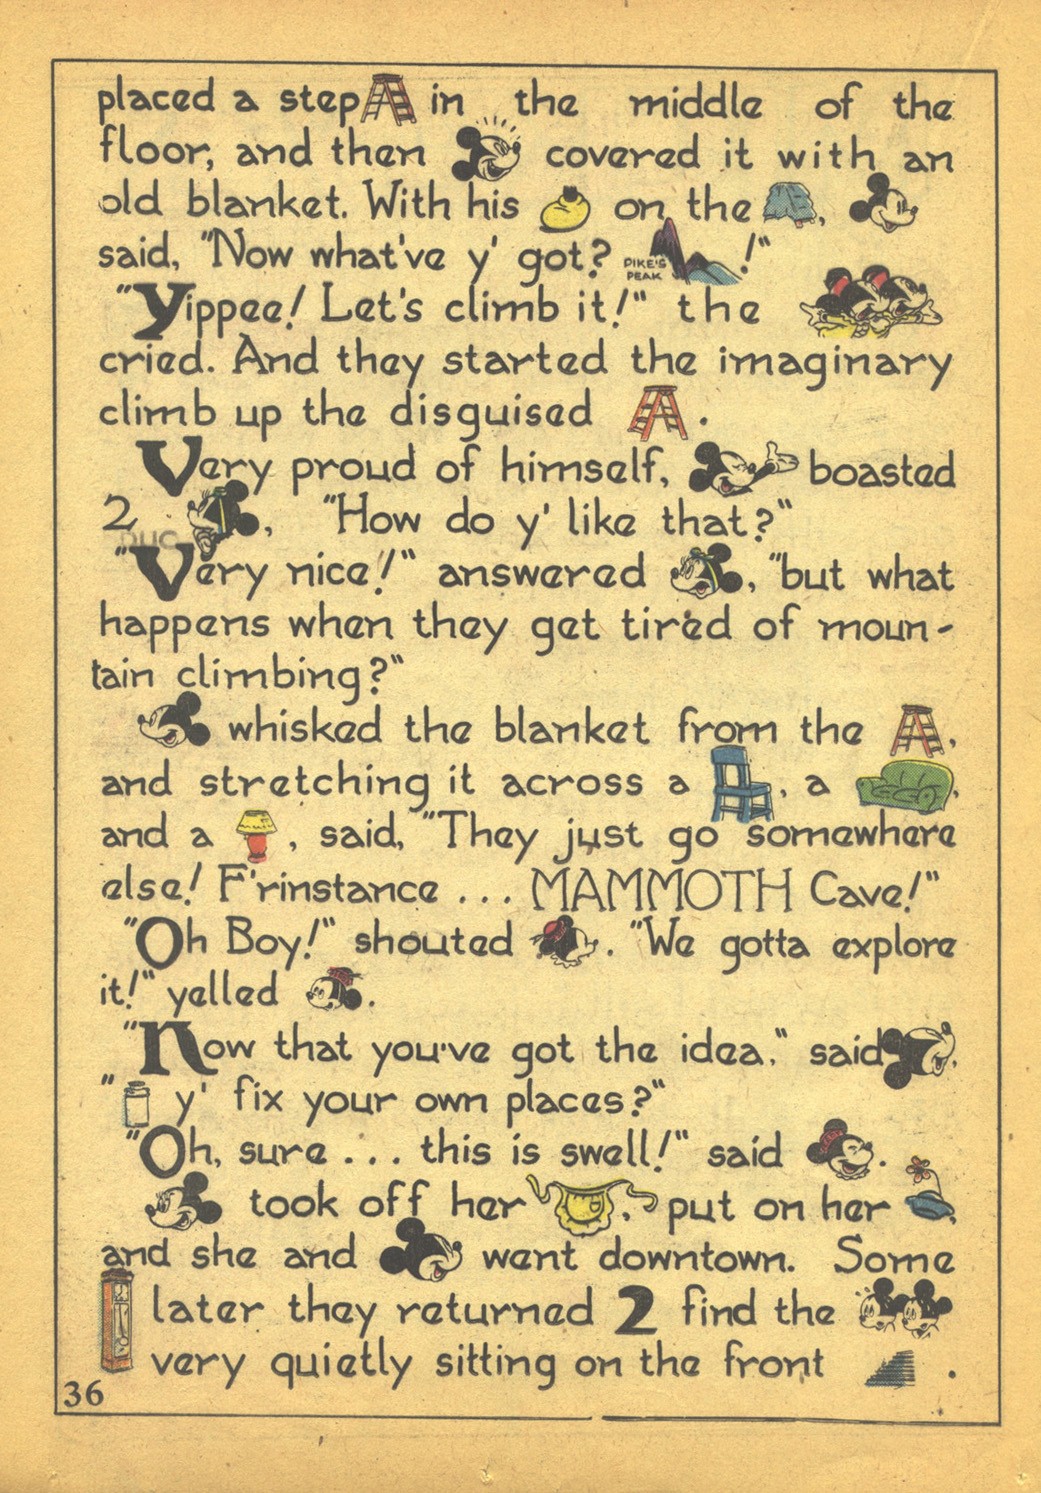 placed a step in the middle of the
floor, and then covered it with an
old blanket. With his on the ,
said, "Now what've y' got? PIKE'S PEAK !"
"Yippee! Let's climb it!" the
cried. And they started the imaginary
climb up the disguised .
Very proud of himself, boasted
2 , "How do y' like that?"
"Very nice!" answered , "but what
happens when they get tired of moun-
tain climbing?"
whisked the blanket from the ,
and stretching it across a , a ,
and a , said, "They just go somewhere
else! F'rinstance ... MAMMOTH Cave!"
"Oh Boy!" shouted . "We gotta explore
it!" yelled .
"Now that you've got the idea," said ,
" y' fix your own places?"
"Oh, sure ... this is swell!" said .
took off her , put on her ,
and she and went downtown. Some
later they returned 2 find the
very quietly sitting on the front .
36